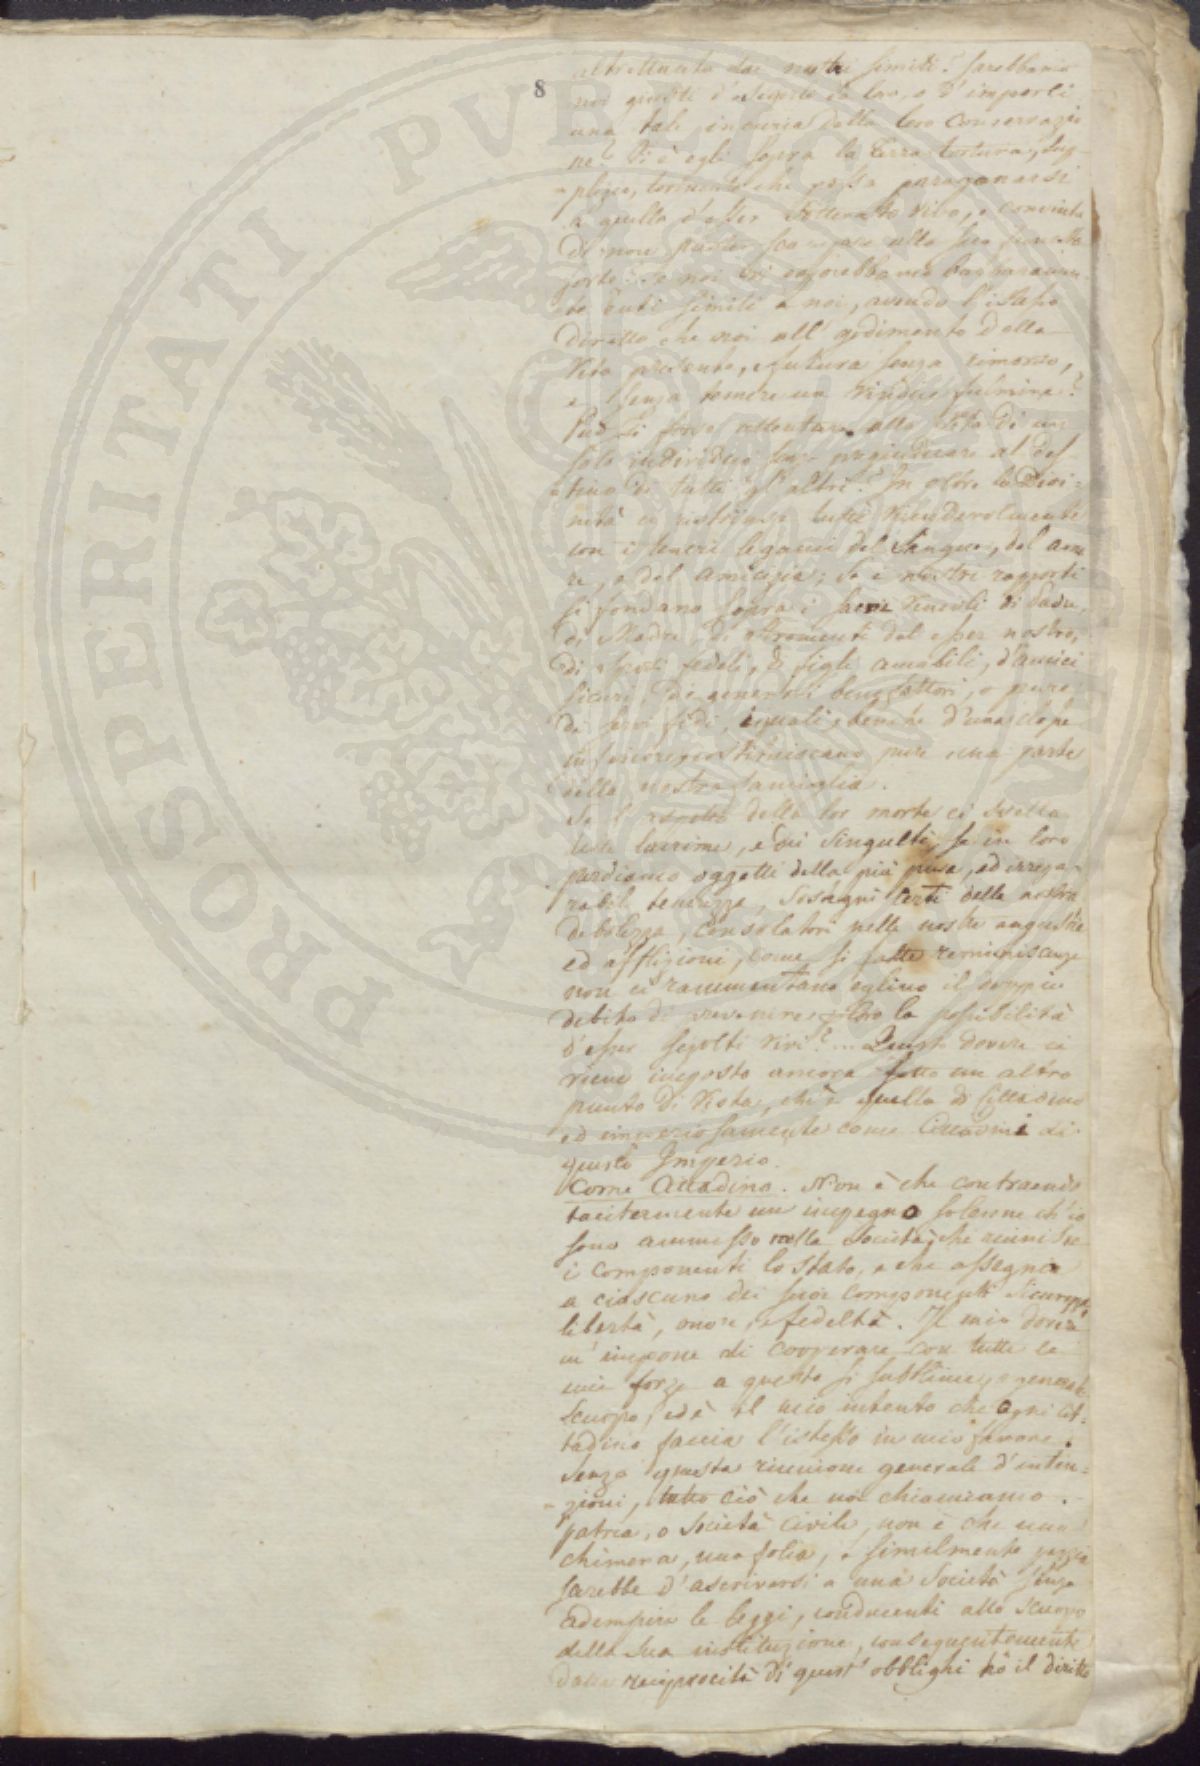 8
altrettanto dai nostri simili? Sarebbamo
noi giusti d'esigerlo da loro, o d'imporli
una tale incuria della loro conservazio
ne? Vi è egli sopra la terra tortura, sup-
plizio, tormento che possa paragonarsi
a quello d'esser sotterrato vivo, e convinto
di non poter scappare alla sua funesta
sorte? e noi vi esporebbamo barbaramen
te enti simili a noi, avendo l'istesso
diritto che noi all'godimento della
vita presente, e futura senza rimorso,
e senza temere un vindice fulmine?
Può si forse attentare alla vita di un
solo individuo senza pregiudicare al des
tino di tutti gl'altri? In oltre la Divi-
nità ci ristringe tutti vicendevolmente
con i teneri legami del Sangue, del amo
re, e del amicizia; Se i nostri rapporti
si fondano sopra i sacri vincoli di Padre,
di Madre, di stromenti del esser nostro,
di sposi fedeli, di figli amabili, d'amici
sicuri, di generosi benefattori, o pure
di servi fidi, i quali, benchè d'una classe
inferiore costituiscano pure una parte
della nostra famiglia.
Se l'aspetto della lor morte ci svella
delle lacrime, e dei Singulti, se in loro
perdiamo oggetti della più pura, ed irrepa-
rabil tenerezza, Sostegni certi della nostra
debolezza, Consolatori nelle nostre angustie
ed afflizioni, come si fatte reminiscenze
non ci rammentano eglino il doppio
debito di prevenire loro la possibilità
d'esser sepolti vivi? ... Questo dovere ci
viene imposto ancora sotto un altro
punto di vista, ch'è quello di Cittadino
ed imperiosamente come Cittadini di
questo Imperio.
Come Cittadino. Non è che contraendo
tacitermente un impegno solenne ch'io
sono ammesso nella Società, che riunisce
i componenti lo Stato, e che assegna
a ciascuno dei suoi componenti Sicurezza,
libertà, onore, e fedeltà. Il mio dovere
m'impone di cooperare con tutte le
mie forze a questo sì sublime, e generale
Scuopo, ed è il mio intento che ogni Cit-
tadino faccia l'istesso in mio favore.
Senza questa riunione generale d'inten-
zioni, tutto ciò che noi chiamiamo
patria, o società civile, non è che una
chimera, una folia, e similmente pazzia
sarebbe d'ascriversi a una Società senza
Adempire le leggi, conducenti allo scuopo
della sua instituzione, conseguentemente
dalla reciprocità di quest'obblighi hò il diritto
PROSPERITATI PVBLICAE